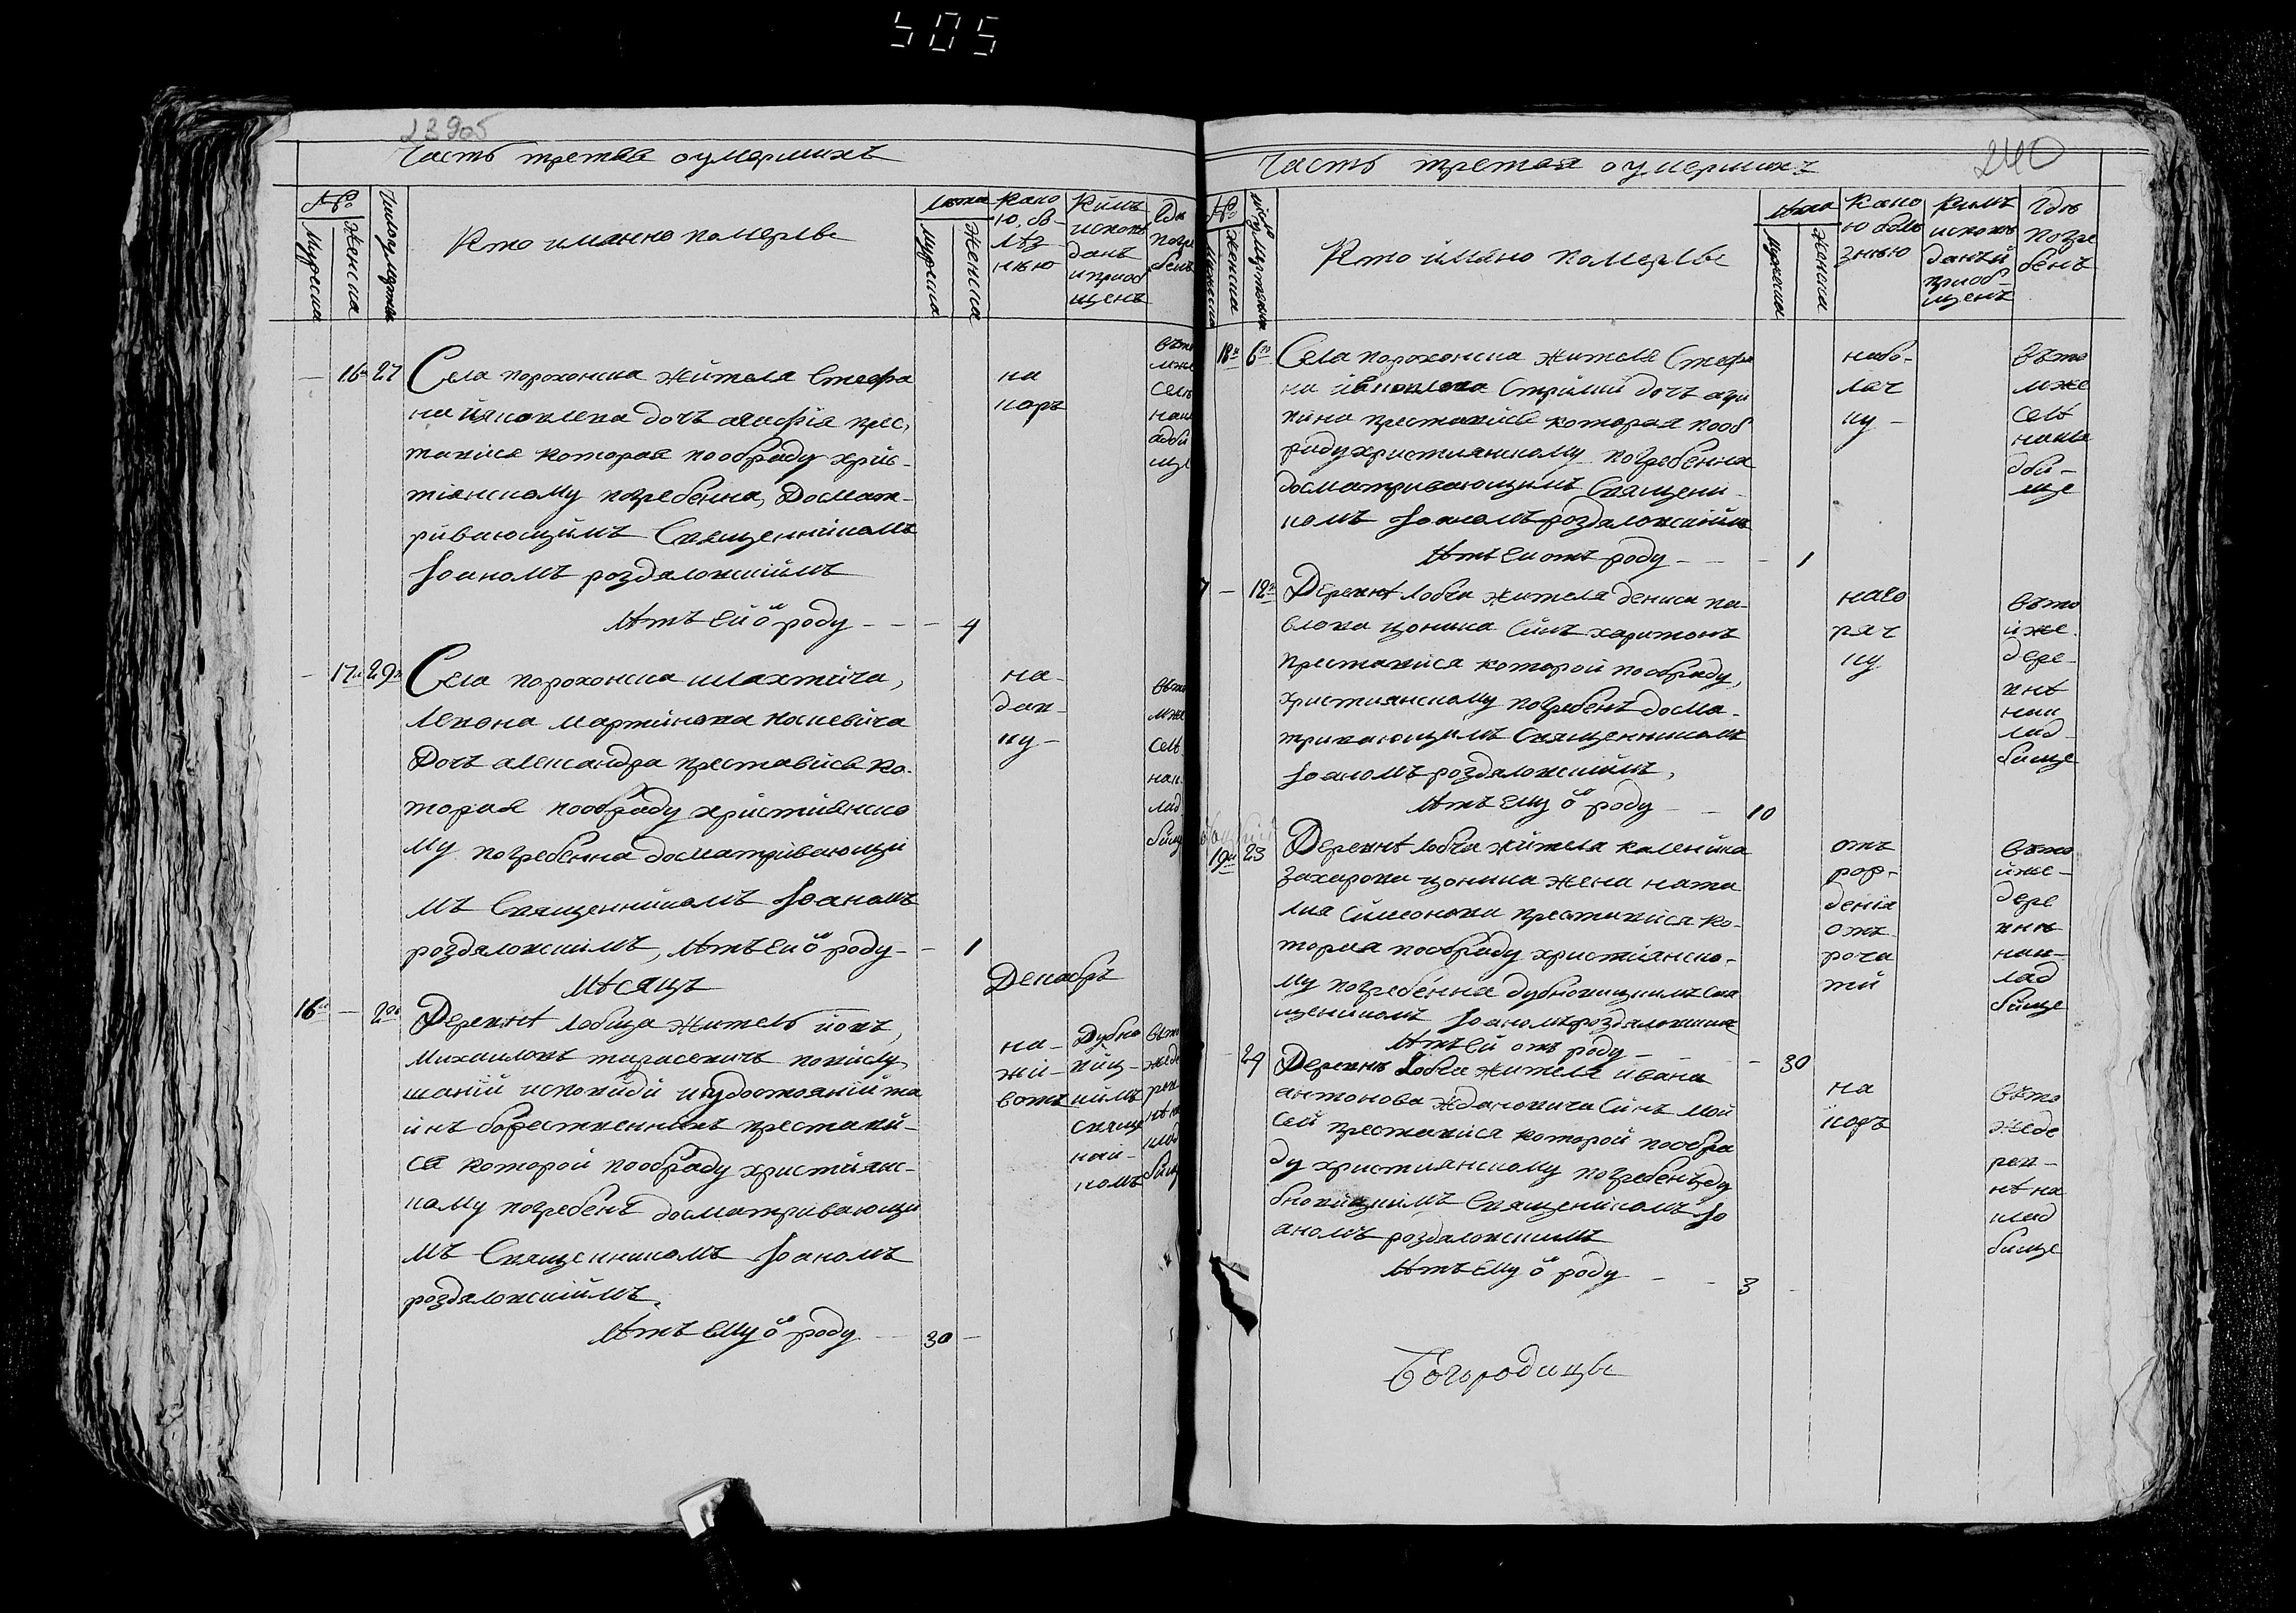 505
23905
Часть третяя оумершихъ
№
Мужеска
Женска
Число умертвія
Кто имянно померъ
Лета
Мужеска
Женска
Како
ю бо
лѣз
нѣю
Кимъ
исповѣ
данъ
и приоб
щенъ
Гдѣ
погре
бенъ
— 16 27
Села порохонска жителя Стефа
на іаковлева дочъ агафія прес,
тавися которая пообряду хрис-
тіянскому погребенна, Досмат-
ривающимъ Священникомъ
Іоаномъ роздяловскіимъ
Лѣтъ ей ѿ роду - - - 4
на
коръ
вто
мже
селѣ
накл
адби
ще
— 17 29
Села порохонска шляхтича,
Левона мартинова
Дочъ александра преставися ко-
торая пообряду християнско
му погребенна досматривающи
мъ Священникомъ Іоаномъ
роздяловскимъ, Лѣтъ ей ѿ роду - — 1
на-
дав-
ку-
вто
мже
селѣ
нак
лад
бищ
Мѣсяцъ Декабръ
16 — 2
Деревнѣ лобча житель іовъ,
Михаиловъ тарасевичъ повислу
шаній исповиди иудостояній та
инъ божественнихъ престави-
ся которой пообряду християнс-
кому погребенъ досматривающи
мъ Священникомъ Іоаномъ
роздяловскіимъ,
Лѣтъ ему ѿ роду — 30 —
на-
жи-
вотъ
Дубно
виц-
киимъ
Свяще
нни-
комъ
вто
жеде
рев
нѣ на
клад
бищ
240
Часть третяя оумершихъ
№
Мужеска
Женска
число умертвія
Кто имяно померъ
Лѣта
Мужеска
Женска
Како
ю болѣ
знѣю
Кимъ
исповѣ
данъ и
приоб-
щенъ
Гдѣ
погре
бенъ
18 6
Села порохонска жителя Стефа
на яковлева Стрилки дочъ агри
пина преставися которая пооб
ряду християнскому погребенна
досматривающимъ Священи-
комъ Іоаномъ роздяловскіимъ
Лѣтъ ей отъ роду - - - 1
набо-
ляч
ку -
вто
мже
селѣ
накла
дби-
ще
7 — 12
Деревнѣ лобча жителя дениса па-
влова цопика синъ харитонъ
преставися которой пообряду,
християнскому погребенъ досма-
тривающимъ Священникомъ
Іоаномъ роздяловскіимъ,
Лѣтъ ему ѿ роду — — 10
наго
ряч
ку
вто
йже
дере-
внѣ
нак
лад-
бище
19 23
Деревнѣ лобча жителя каленика
Захарова цопика жена ната
лия Симонова преставися ко-
торая пообряду християнско-
му погребенна дубновицкимъ Свя
щеникомъ Іоаномъ роздяловским
Лѣтъ ей отъ роду — — 30
отъ
рож-
денія
отъ
роча
тй
вто
йже-
дере
внѣ
нак-
лад
бище
- 29
Деревнѣ Лобча жителя ивана
антонова ждановича синъ мой
сей преставися которой пообря
ду християнскому погребенъ ду
бновицкимъ Священикомъ Іо
аномъ роздяловскимъ
Лѣтъ ему ѿ роду - - 3 -
на
коръ
вто
жеде
рев-
нѣ на
клад
бище
Богородицы